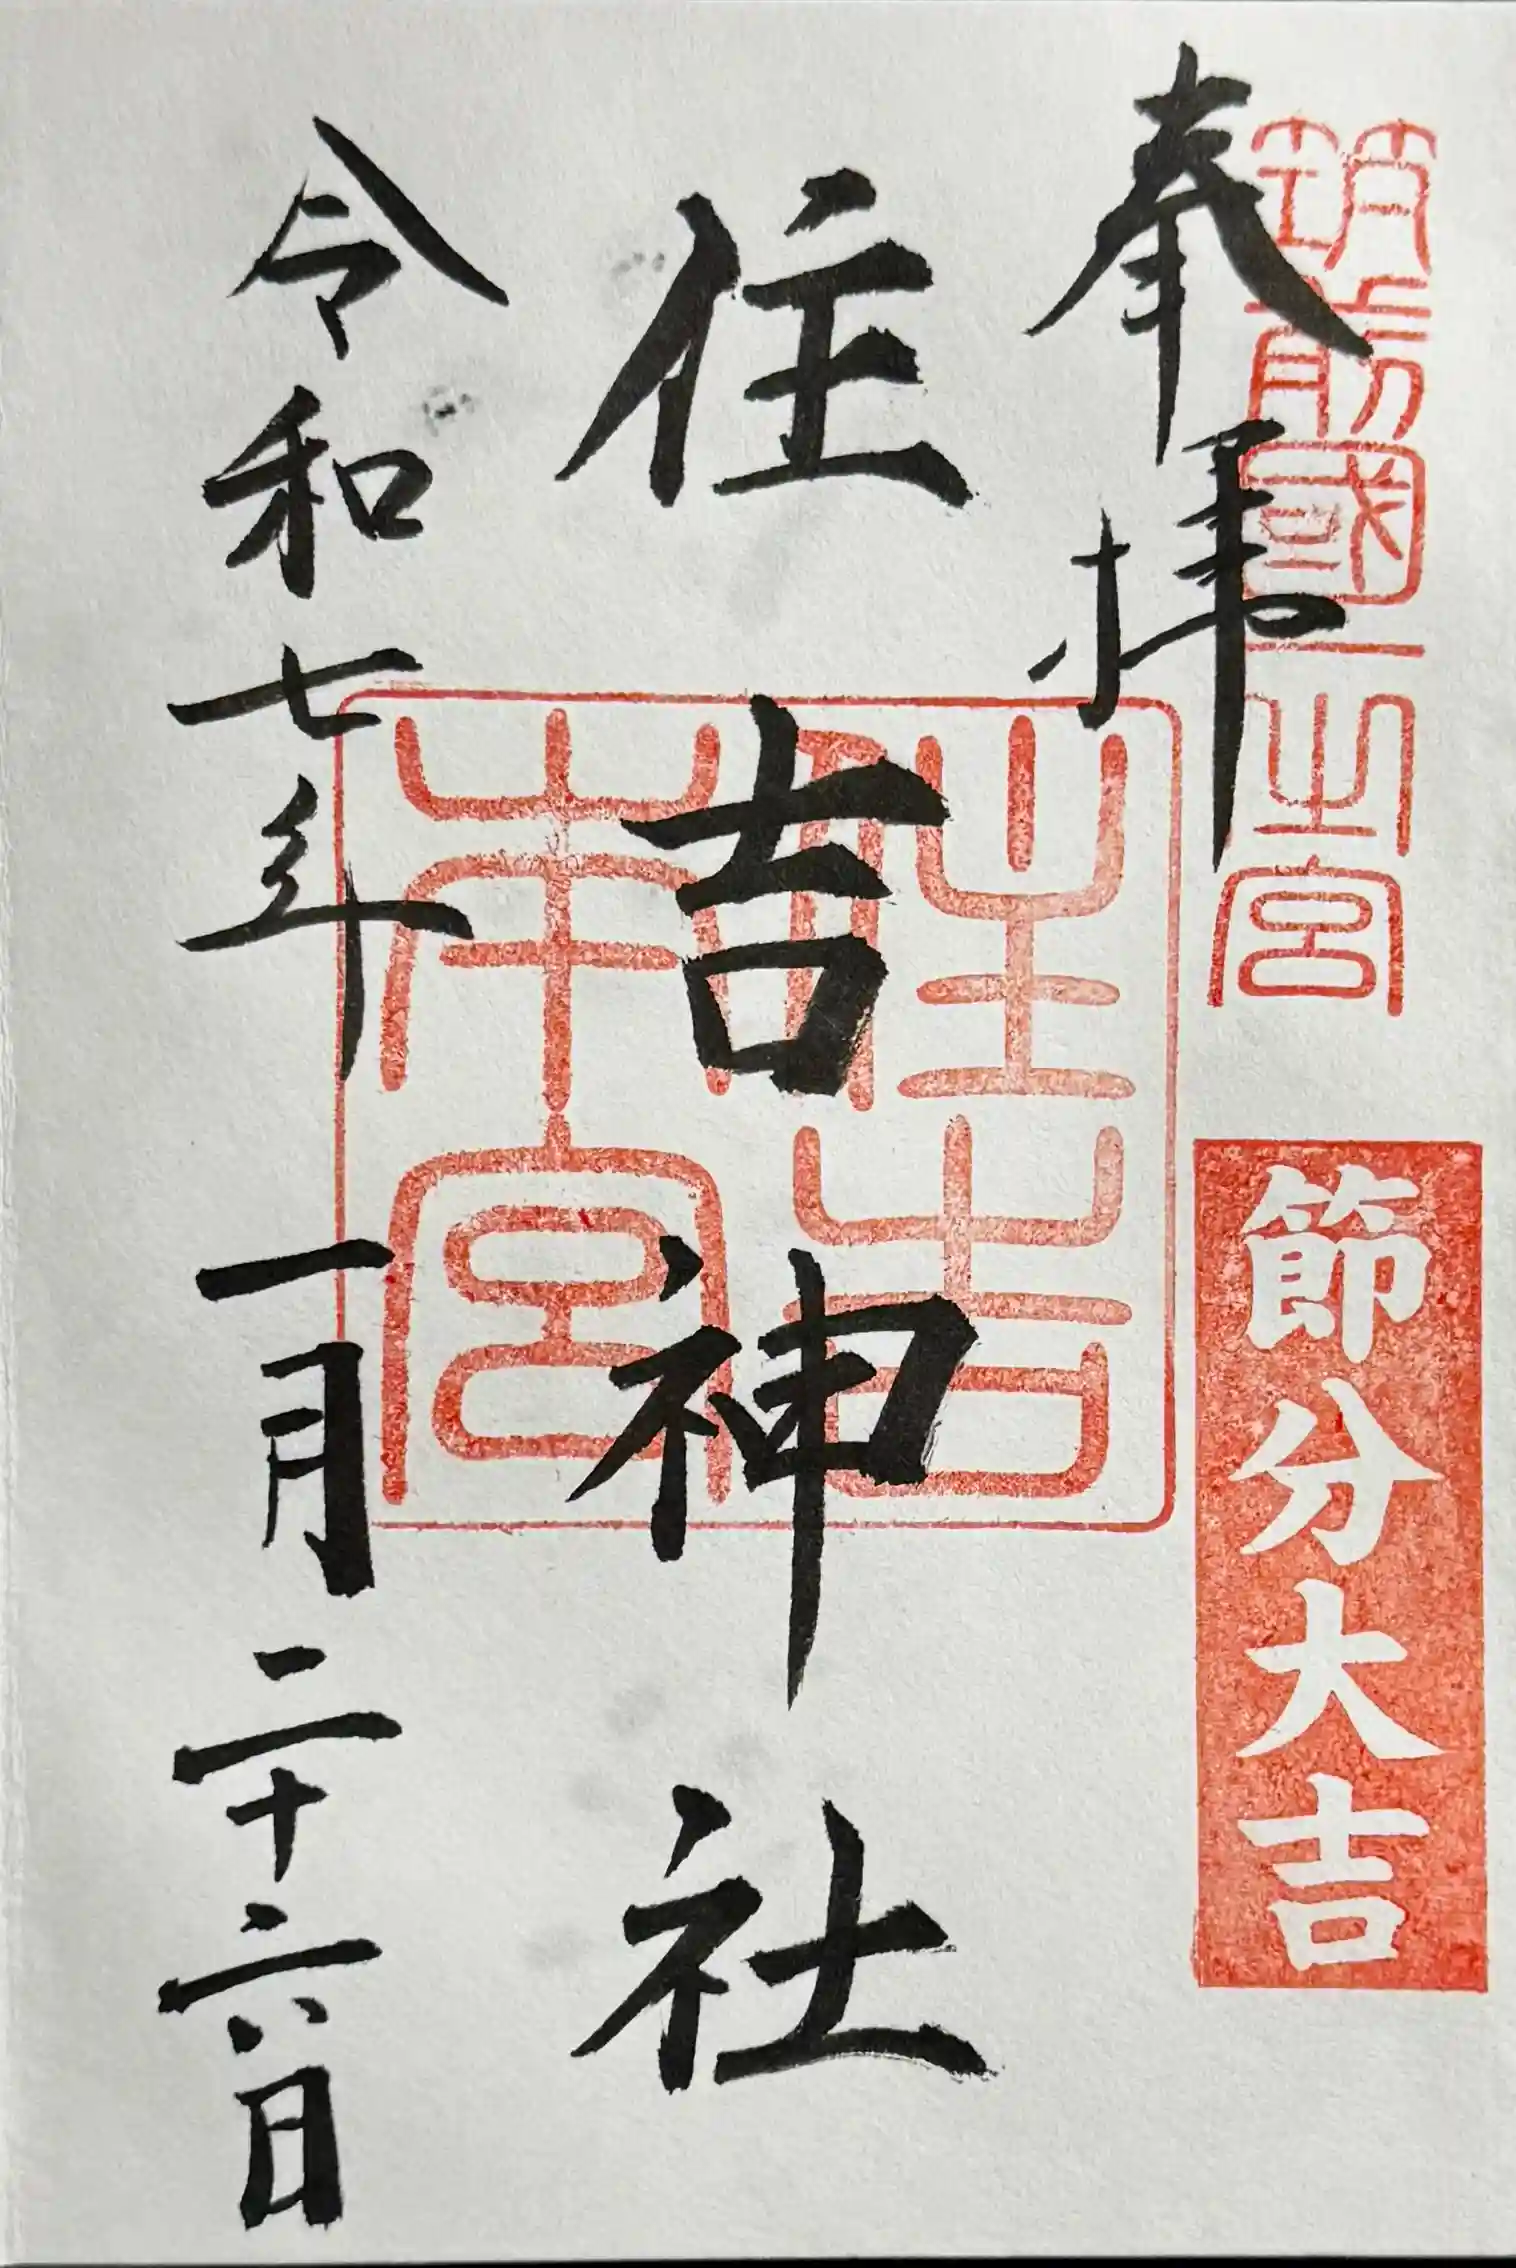 奉拝
筑前國一之宮
節分大吉
住吉神社
住吉本宮
令和七年一月二十六日